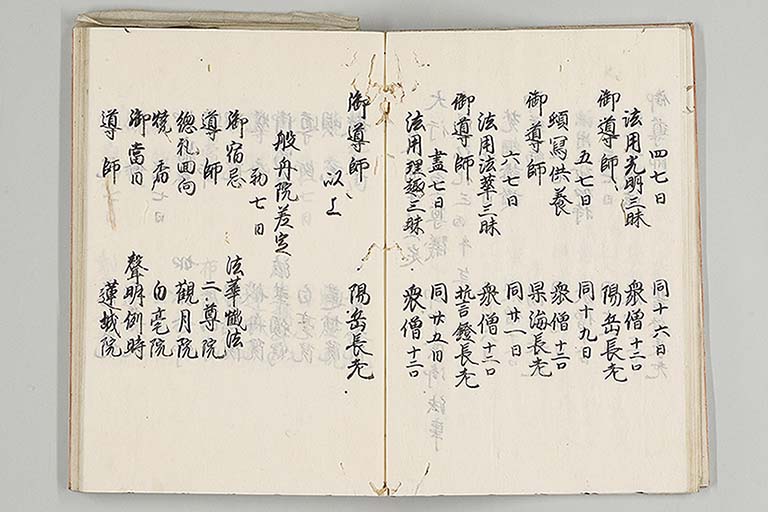 四七日　同十六日
法用光明三昧　衆僧十二口
御導師　陽岳長老
五七日　同十九日
頓寫供養　衆僧十二口
御導師　杲海長老
六七日　同廿一日
法用法華三昧　衆僧十二口
御導師　長老
盡七日　同廿五日
法用理趣三昧　衆僧十二口
御導師　陽岳長老
以上
般舟院差定
初七日
御宿忌　法華懺法
導師　二尊院
総礼回向　觀月院
焼香　白亳院
御當日　聲明例時
導師　蓮城院